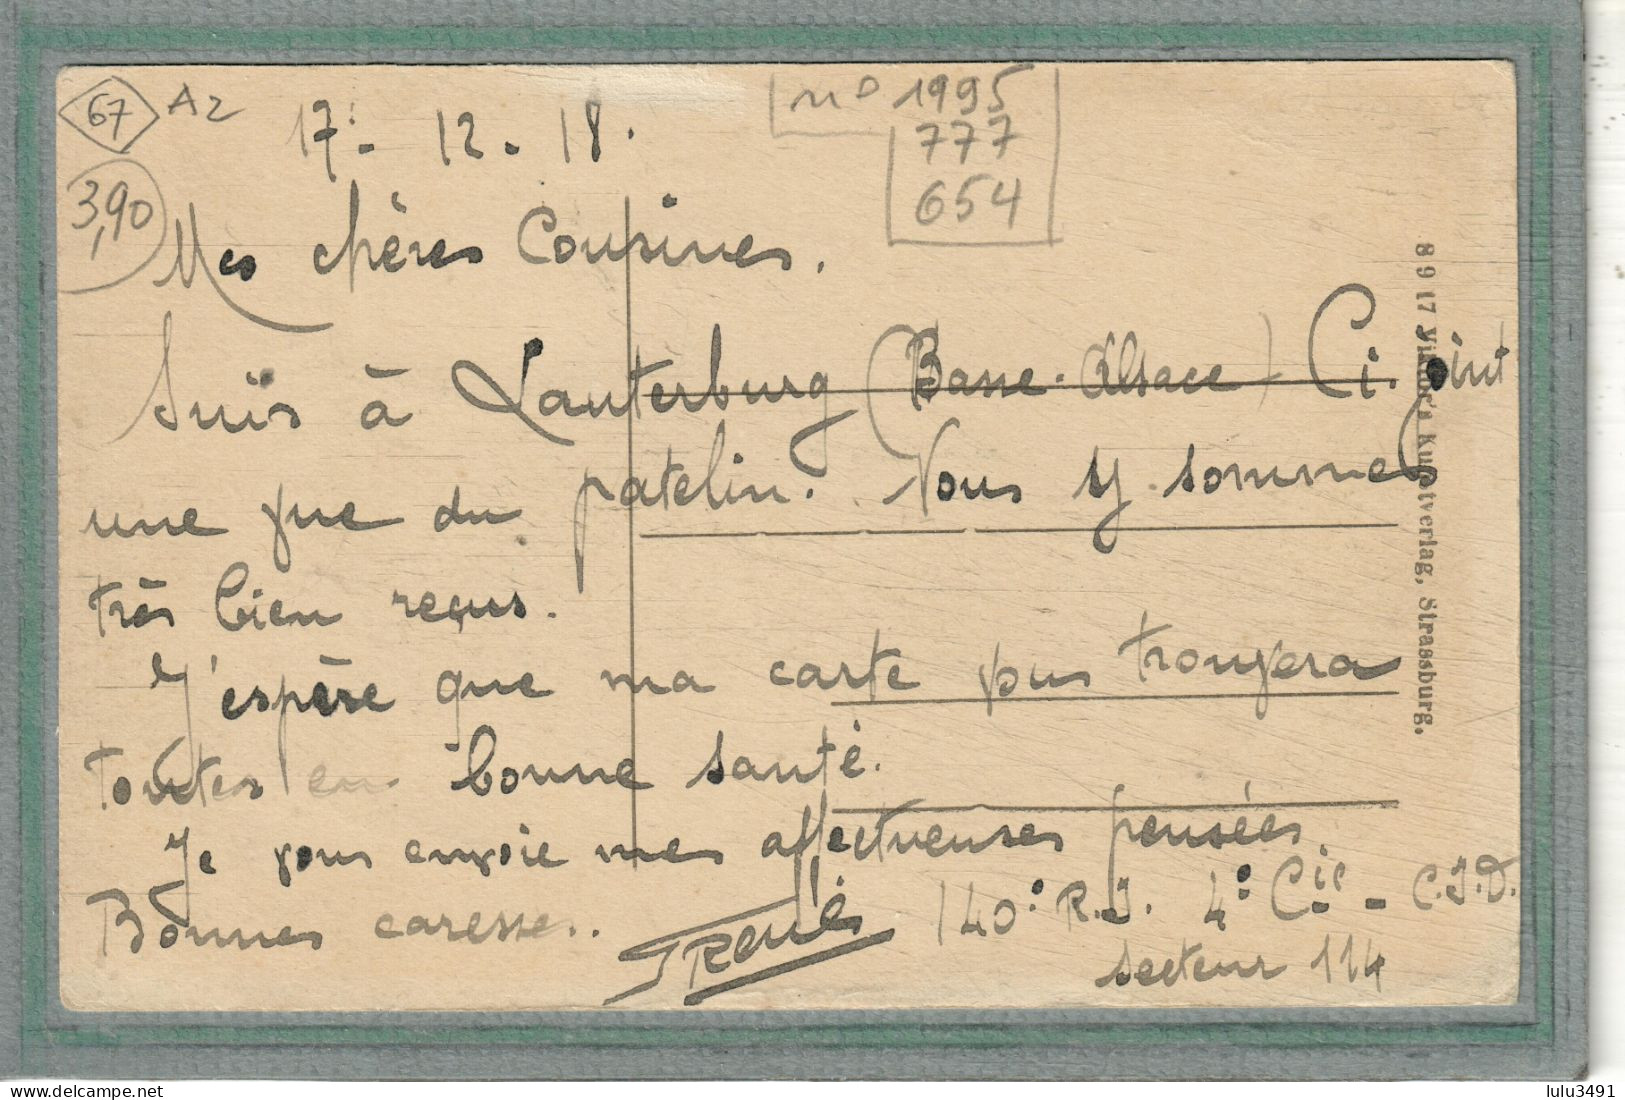 67 A2
n° 1995
777
654
3,90
17 - 12 - 18.
Mes chères Cousines.
Suis à Lauterburg (Basse-Alsace) Ci-joint
une vue du patelin. Nous y sommes
très bien reçus.
J'espère que ma carte vous trouvera
toutes en bonne santé.
Je vous envoie mes affectueuses pensées
Bonnes caresses..
René
140e R.I. 4e Cie - C.I.D.
secteur 114
8917 Viktor's Kunstverlag, Strassburg.
lulu3491